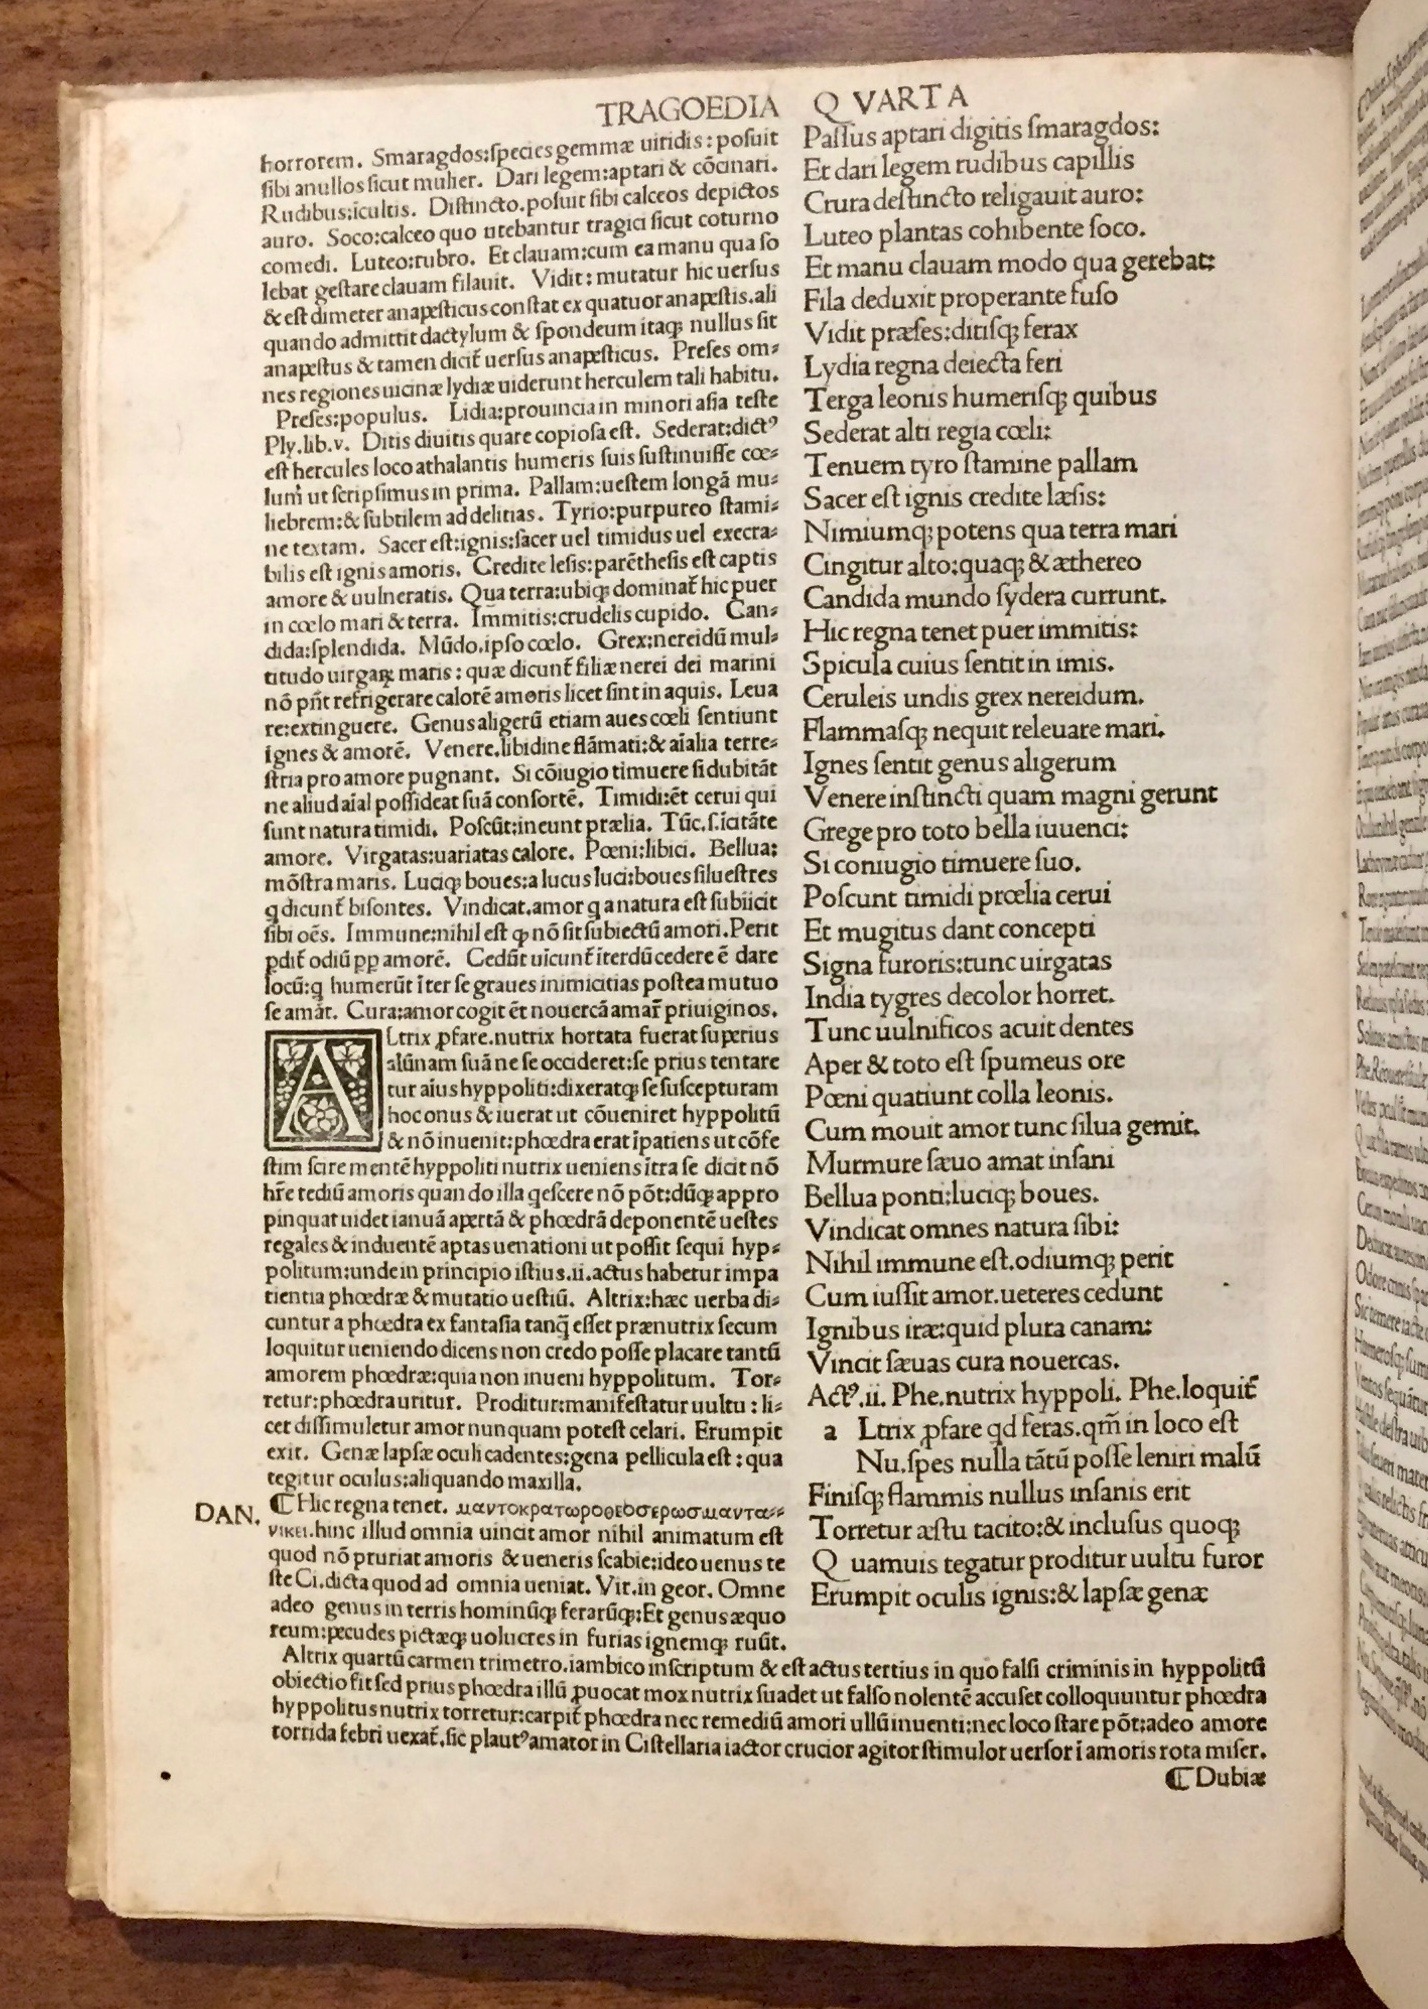 TRAGOEDIA QVARTA
horrorem. Smaragdos:species gemmæ uiridis: posuit
sibi anullos sicut mulier. Dari legem:aptari & cōcinari.
Rudibus:īcultis. Distincto.posuit sibi calceos depictos
auro. Soco:calceo quo utebantur tragici sicut coturno
comedi. Luteo:rubro. Et clauam:cum ea manu qua so
lebat gestare clauam filauit. Vidit: mutatur hic uersus
& est dimeter anapæsticus constat ex quatuor anapæstis.ali
quando admittit dactylum & spondeum itaq; nullus sit
anapæstus & tamen dicit̄ uersus anapæsticus. Preses om⸗
nes regiones uicinæ lydiæ uiderunt herculem tali habitu.
Preses:populus. Lidia:prouincia in minori asia teste
Ply.lib.v. Ditis diuitis quare copiosa est. Sederat:dictꝰ
est hercules loco athalantis humeris suis sustinuisse cœ⸗
lum̄ ut scripsimus in prima. Pallam:uestem longā mu⸗
liebrem:& subtilem ad delitias. Tyrio:purpureo stami⸗
ne textam. Sacer est:ignis:sacer uel timidus uel execra⸗
bilis est ignis amoris. Credite lesis:parēthesis est captis
amore & uulneratis. Qua terra:ubiq; dominat̄ hic puer
in cœlo mari & terra. Immitis:crudelis cupido. Can⸗
dida:splendida. Mūdo.ipso cœlo. Grex:nereidū mul⸗
titudo uirgaꝝ maris: quæ dicunt̄ filiæ nerei dei marini
nō pn̄t refrigerare calorē amoris licet sint in aquis. Leua
re:extinguere. Genus aligerū etiam aues cœli sentiunt
ignes & amorē. Venere.libidine flāmati:& aīalia terre⸗
stria pro amore pugnant. Si cōiugio timuere si dubitāt
ne aliud aīal possideat suā consortē. Timidi:ēt cerui qui
sunt natura timidi. Poscūt:ineunt prælia. Tūc.s.īcitāte
amore. Virgatas:uariatas calore. Pœni:libici. Bellua:
mōstra maris. Luciq; boues:a lucus luci:boues siluestres
q dicunt̄ bisontes. Vindicat.amor q a natura est subiicit
sibi oēs. Immune:nihil est ꝙ nō sit subiectū amori.Perit
ꝑdit̄ odiū ꝓꝑ amorē. Cedūt uīcunt̄ īterdū cedere ē dare
locū:q humerūt īter se graues inimicitias postea mutuo
se amāt. Cura:amor cogit ēt nouercā amar̄ priuignos.
ALtrix ꝓfare.nutrix hortata fuerat superius
alūnam suā ne se occideret:se prius tentare
tur aīus hyppoliti:dixeratq; se suscepturam
hoc onus & iuerat ut cōueniret hyppolitū
& nō inuenit:phœdra erat īpatiens ut cōfe
stim scire mentē hyppoliti nutrix ueniens ītra se dicit nō
hr̄e tediū amoris quando illa qescere nō pōt:dūq; appro
pinquat uidet ianuā apertā & phœdrā deponentē uestes
regales & induentē aptas uenationi ut possit sequi hyp⸗
politum:unde in principio istius .ii.actus habetur impa
tientia phœdræ & mutatio uestiū. Altrix:hæc uerba di⸗
cuntur a phœdra ex fantasia tanq̄ esset præ nutrix secum
loquitur ueniendo dicens non credo posse placare tantū
amorem phœdræ:quia non inueni hyppolitum. Tor⸗
retur:phœdra uritur. Proditur:manifestatur uultu : li⸗
cet dissimuletur amor nunquam potest celari. Erumpit
exit. Genæ lapsæ oculi cadentes:gena pellicula est : qua
tegitur oculus:aliquando maxilla.
DAN. ¶ Hic regna tenet. μαντοκρατωροθεοσερωσμαντα⸗
νικει.hinc illud omnia uincit amor nihil animatum est
quod nō pruriat amoris & ueneris scabie:ideo uenus te
ste Ci.dicta quod ad omnia ueniat. Vir.in geor. Omne
adeo genus in terris hominūq; ferarūq;:Et genus æquo
reum:pecudes pictæq; uolucres in furias ignemq; ruūt.
Passus aptari digitis smaragdos:
Et dari legem rudibus capillis
Crura destincto religauit auro:
Luteo plantas cohibente soco.
Et manu clauam modo qua gerebat:
Fila deduxit properante fuso
Vidit præses:ditisq; ferax
Lydia regna deiecta feri
Terga leonis humerisq; quibus
Sederat alti regia cœli:
Tenuem tyro stamine pallam
Sacer est ignis credite læsis:
Nimiumq; potens qua terra mari
Cingitur alto:quaq; & æthereo
Candida mundo sydera currunt.
Hic regna tenet puer immitis:
Spicula cuius sentit in imis.
Ceruleis undis grex nereidum.
Flammasq; nequit releuare mari.
Ignes sentit genus aligerum
Venere instincti quam magni gerunt
Grege pro toto bella iuuenci:
Si coniugio timuere suo.
Poscunt timidi prœlia cerui
Et mugitus dant concepti
Signa furoris:tunc uirgatas
India tygres decolor horret.
Tunc uulnificos acuit dentes
Aper & toto est spumeus ore
Pœni quatiunt colla leonis.
Cum mouit amor tunc silua gemit.
Murmure sæuo amat insani
Bellua ponti:luciq; boues.
Vindicat omnes natura sibi:
Nihil immune est.odiumq; perit
Cum iussit amor.ueteres cedunt
Ignibus iræ:quid plura canam:
Vincit sæuas cura nouercas.
Actꝰ.ii. Phe.nutrix hyppoli. Phe.loquit̄
a Ltrix ꝓfare qd feras.qm̄ in loco est
Nu.spes nulla tātū posse leniri malū
Finisq; flammis nullus insanis erit
Torretur æstu tacito:& inclusus quoq;
Quamuis tegatur proditur uultu furor
Erumpit oculis ignis:& lapsæ genæ
Altrix quartū carmen trimetro.iambico inscriptum & est actus tertius in quo falsi criminis in hyppolitū
obiectio fit sed prius phœdra illū ꝓuocat mox nutrix suadet ut falso nolentē accuset colloquuntur phœdra
hyppolitus nutrix torretur:carpit̄ phœdra nec remediū amori ullū inuenti:nec loco stare pōt:adeo amore
torrida febri uexat̄.sic plautꝰ amator in Cistellaria iactor crucior agitor stimulor uersor ī amoris rota miser.
¶ Dubiæ